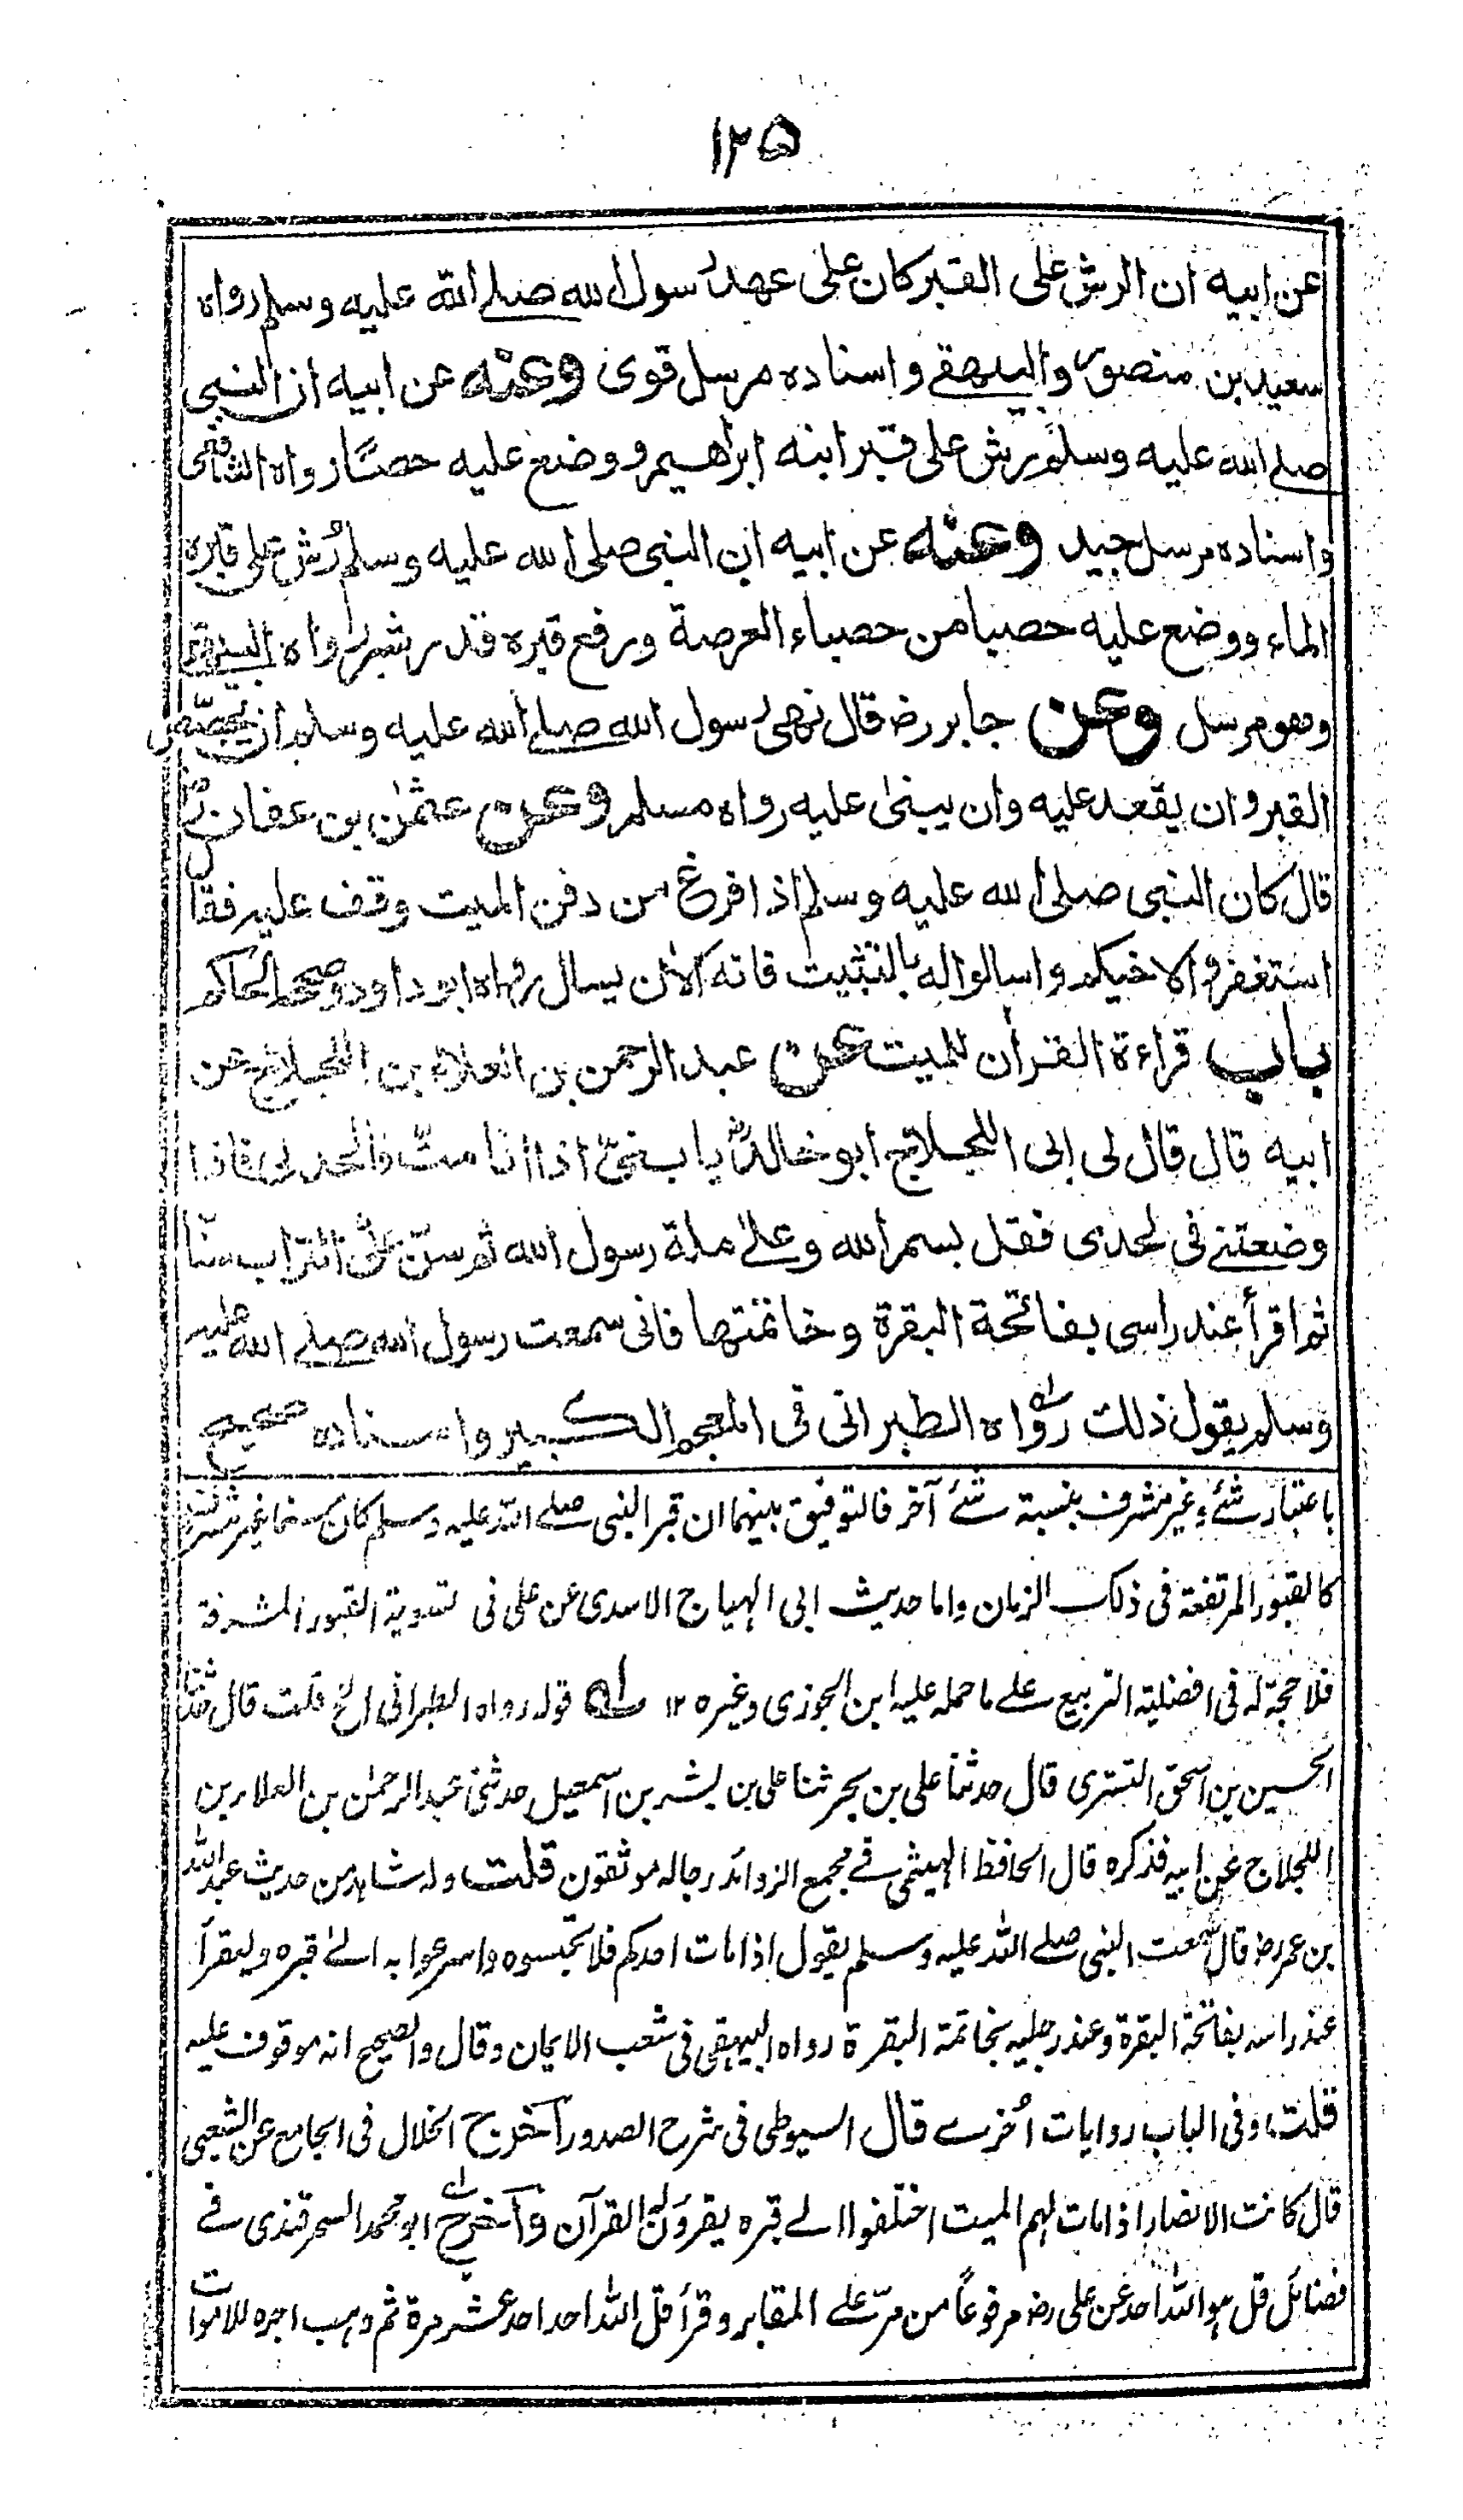 ١٢٥
عن ابيه ان الرش على القبر كان على عهد رسول الله صلے الله عليه وسلم رواه
سعيد بن منصور والبيهقے واسناده مرسل قوى وعنه عن ابيه ان النبى
صلے الله عليه وسلم رش على قبر ابنه ابراهيم ووضع عليه حصبًا رواه الشافعى
واسناده مرسل جيد وعنه عن ابيه ان النبى صلى الله عليه وسلم رُش على قبره
الماء ووضع عليه حصبا من حصباء العرصة ورفع قبره قدر شبر رواه البيهقے
وهو مرسل وعن جابر رض قال نهى رسول الله صلے الله عليه وسلم ان يجصّص
القبر وان يقعد عليه وان يبنىٰ عليه رواه مسلم وعن عثمٰن بن عفان رض
قال كان النبى صلى الله عليه وسلم اذا فرغ من دفن الميت وقف عليه فقال
استغفروا لاخيكم واسالوا له بالتثبيت فانه الاٰن يسال رواه ابو داود وصححه الحاكم
باب قراءة القراٰن للميت عن عبد الرحمن بن العلاء بن اللجلاج عن
ابيه قال قال لى ابى اللجلاج ابو خالد رض يا بنىّ اذا انا متّ فالحد لى فاذا
وضعتنے فى لحدى فقل بسم الله وعلےٰ ملة رسول الله ثم سنّ علىّ التراب سنّا
ثم اقرأ عند راسى بفاتحة البقرة وخاتمتها فانى سمعت رسول الله صلے الله عليه
وسلم يقول ذلك رواه الطبرانى فى المعجم الكبير واسناده صحيح
باعتبار شئے وغير مشرف بنسبة شئے آخر فالتوفيق بينهما ان قبر النبى صلے الله عليه وسلم كان مسنما غير مشرف
كالقبور المرتفعة فى ذلك الزمان واما حديث ابى الهياج الاسدى عن على فى تسوية القبور المشرفة
فلا حجة له فى افضلية التربيع علے ما حمله عليه ابن الجوزى وغيره ١٢ له قوله رواه الطبرانى الخ قلت قال حدثنا
الحسين بن اسحق التسترى قال حدثنا على بن بحر ثنا على بن بشر بن اسمعيل حدثنى عبد الرحمٰن بن العلاء بن
اللجلاج عن ابيه فذكره قال الحافظ الهيثمى فے مجمع الزوائد رجاله موثقون قلت وله شاهد من حديث عبد الله
بن عمر رض قال سمعت النبى صلے الله عليه وسلم يقول اذا مات احدكم فلا تحبسوه واسرعوا به الےٰ قبره وليقرأ
عند راسه بفاتحة البقرة وعند رجليه بخاتمة البقرة رواه البيهقى فى شعب الايمان وقال والصحيح انه موقوف عليه
قلت وفى الباب روايات اُخرے قال السيوطى فى شرح الصدور اخرج الخلال فى الجامع عن الشعبى
قال كانت الانصار اذا مات لهم الميت اختلفوا الے قبره يقرؤن له القرآن واخرج ابو محمد السمرقندى فے
فضائل قل هو الله احد عن على رض مرفوعاً من مرّ علے المقابر وقرأ قل الله احد احد عشر مرة ثم وهب اجره للاموات